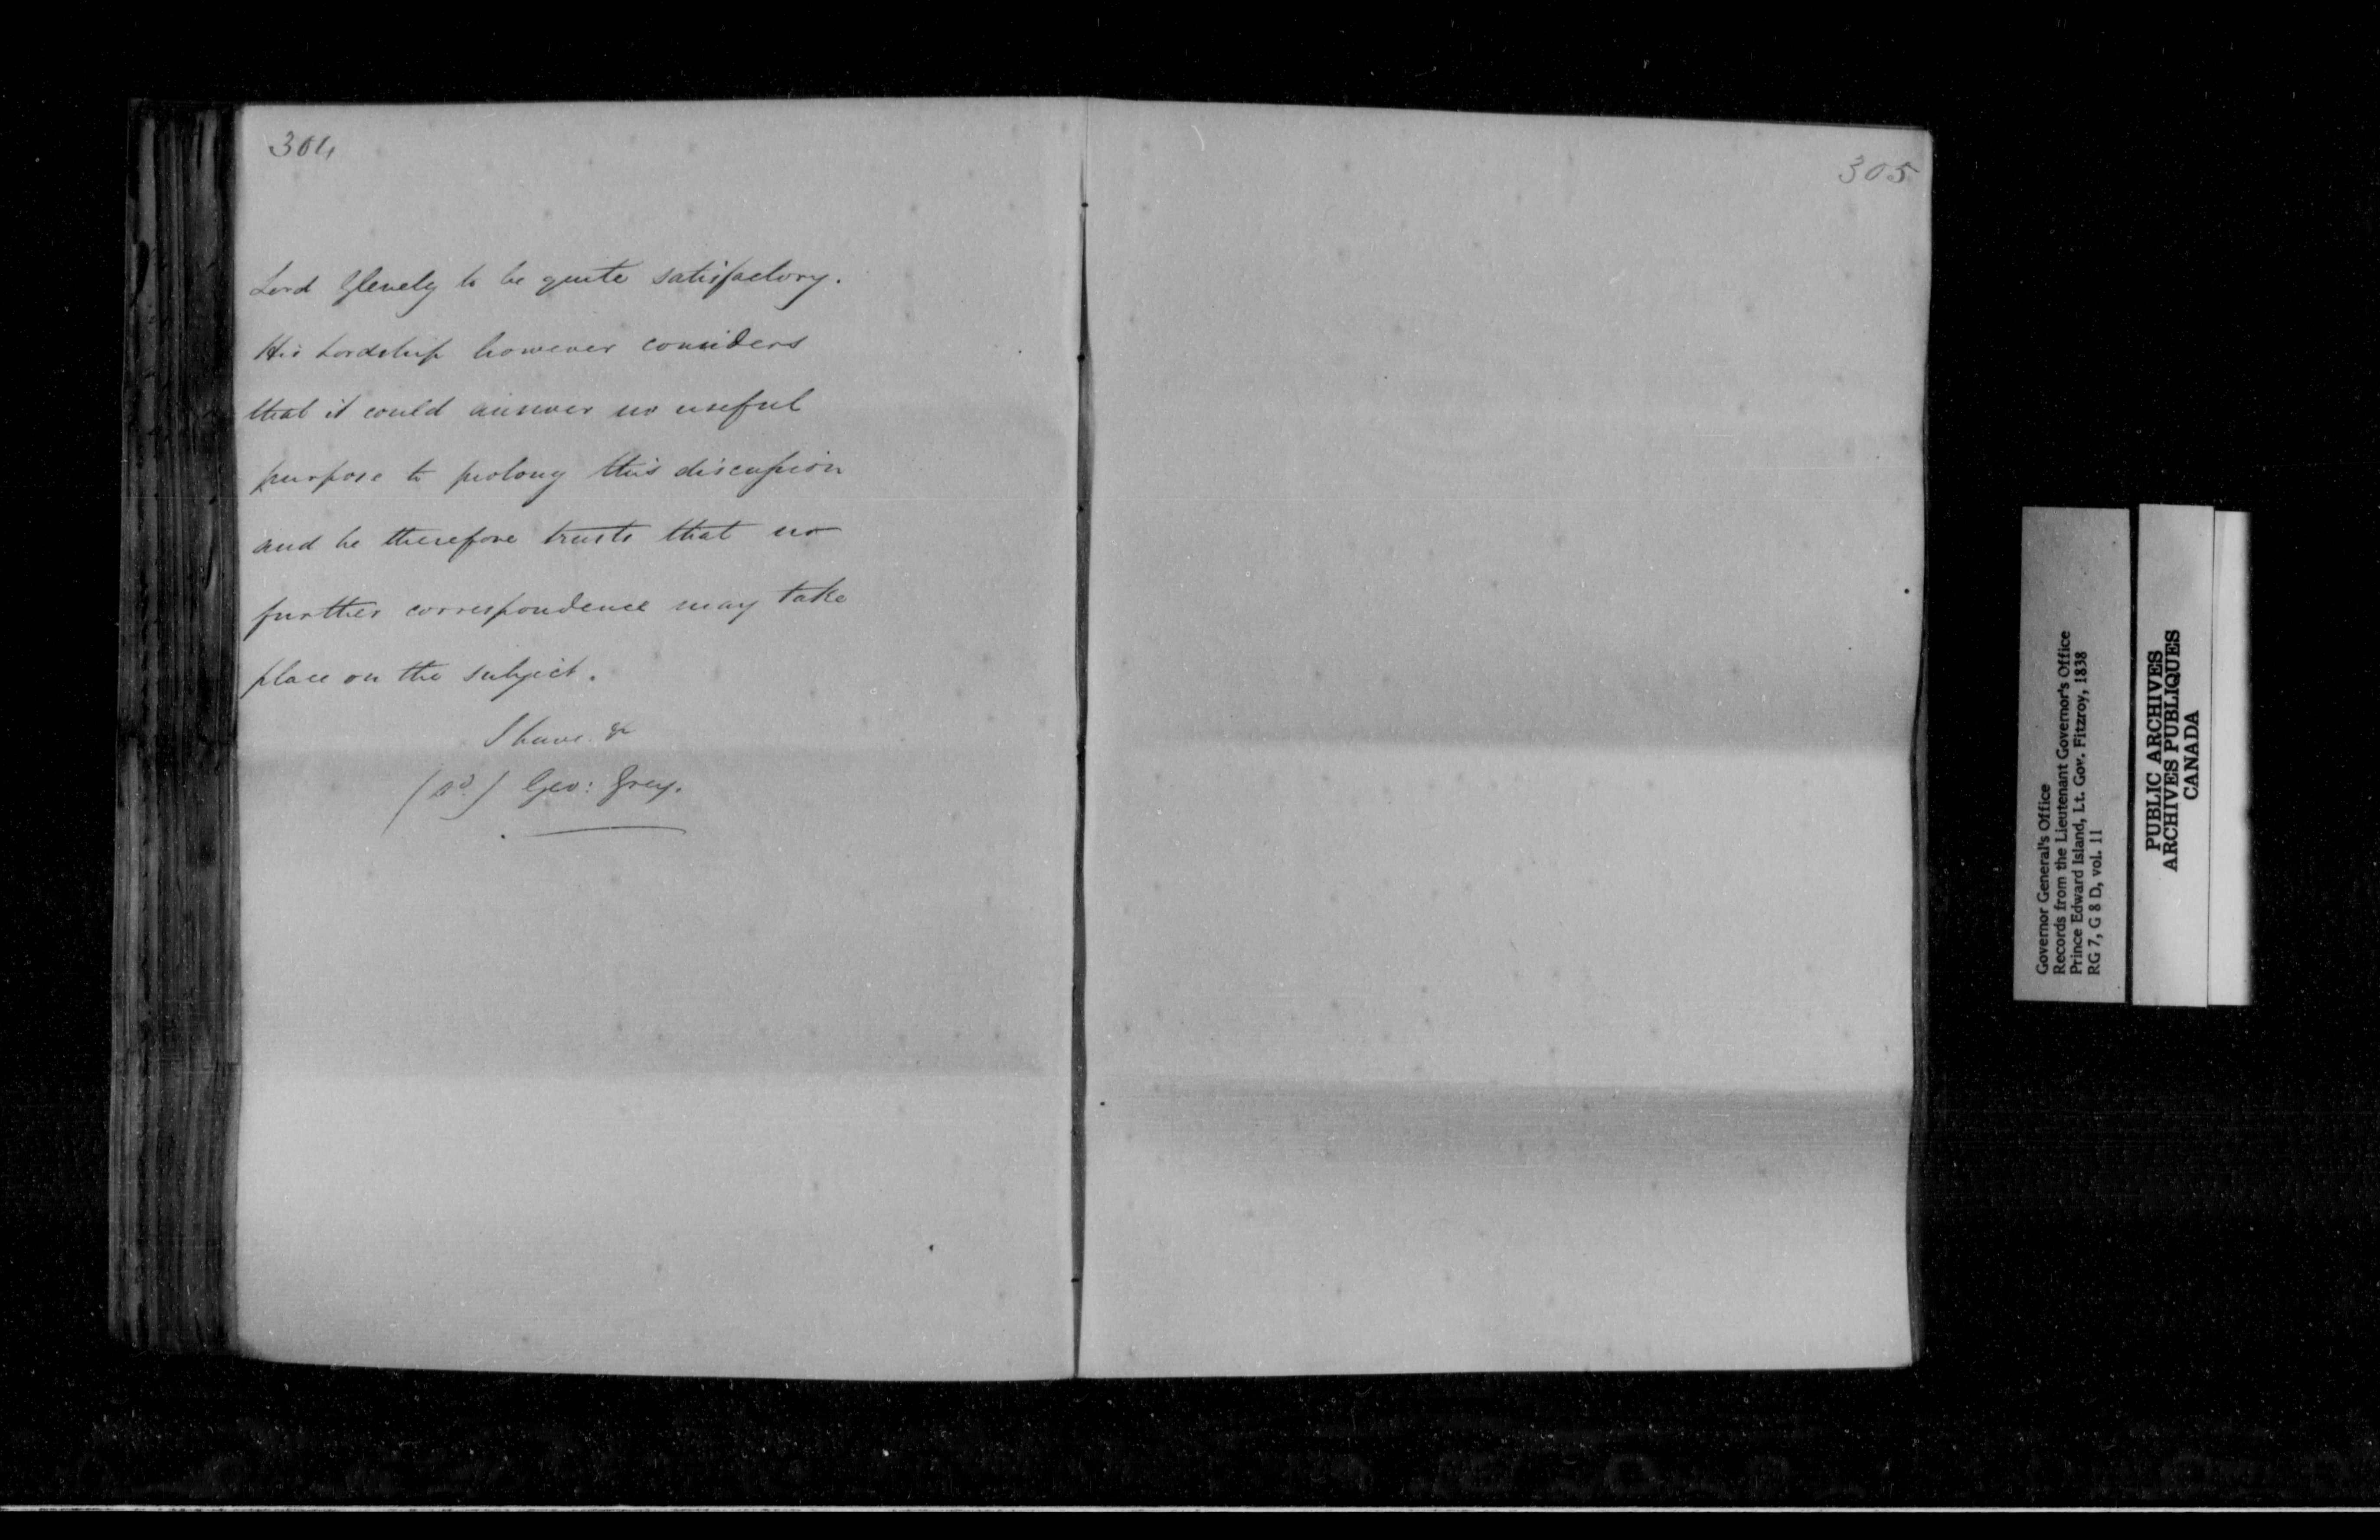 304
Lord Glenelg to be quite satisfactory.
His Lordship however considers
that it could answer no useful
purpose to prolong this discussion
and he therefore trusts that no
further correspondence may take
place on the subject.
I have &c
(sd) Geo: Grey.
305
Governor General's Office
Records from the Lieutenant Governor's Office
Prince Edward Island, Lt. Gov. Fitzroy, 1838
RG 7, G 8 D, vol. 11
PUBLIC ARCHIVES
ARCHIVES PUBLIQUES
CANADA